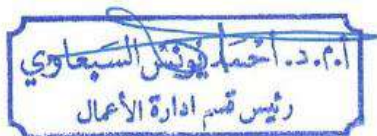 أ.م.د. أحمد يونس السبعاوي
رئيس قسم ادارة الأعمال